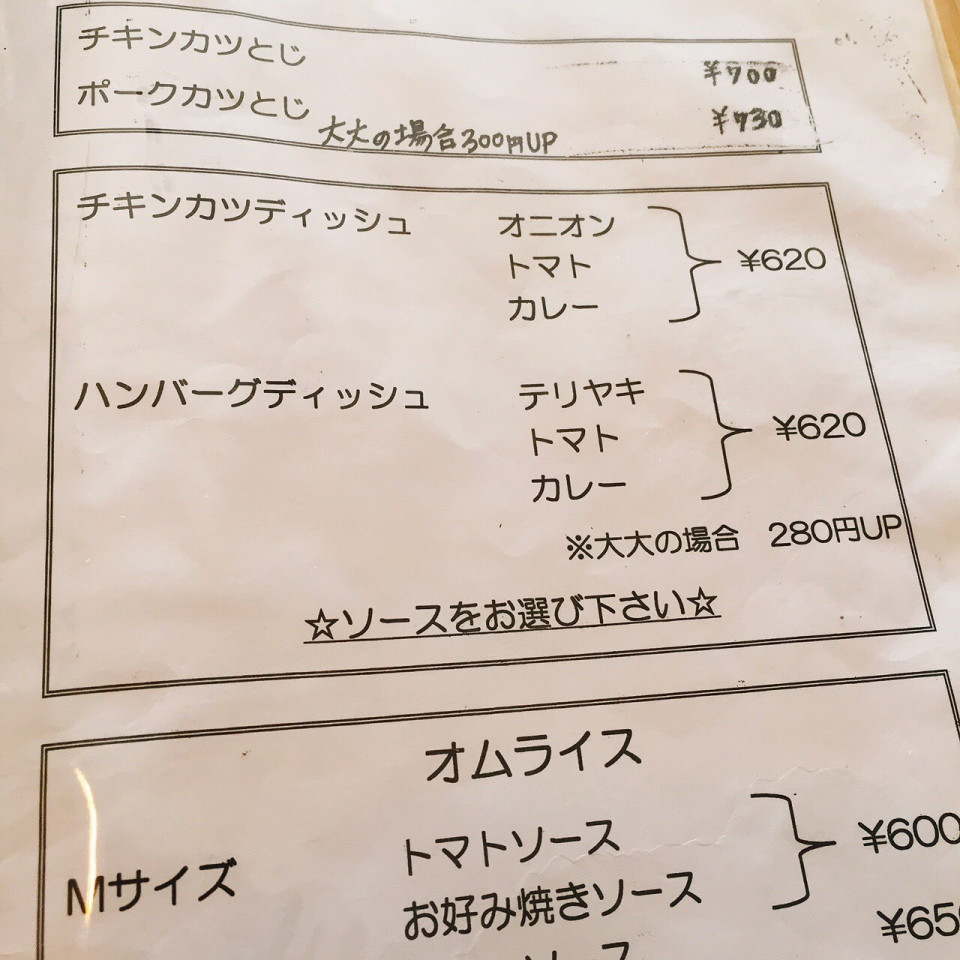 チキンカツとじ ¥700
ポークカツとじ ¥730
大大の場合300円UP
チキンカツディッシュ オニオン
トマト ¥620
カレー
ハンバーグディッシュ テリヤキ
トマト ¥620
カレー
※大大の場合 280円UP
☆ソースをお選び下さい☆
オムライス
トマトソース ¥600
Mサイズ
お好み焼きソース
¥650
ソース